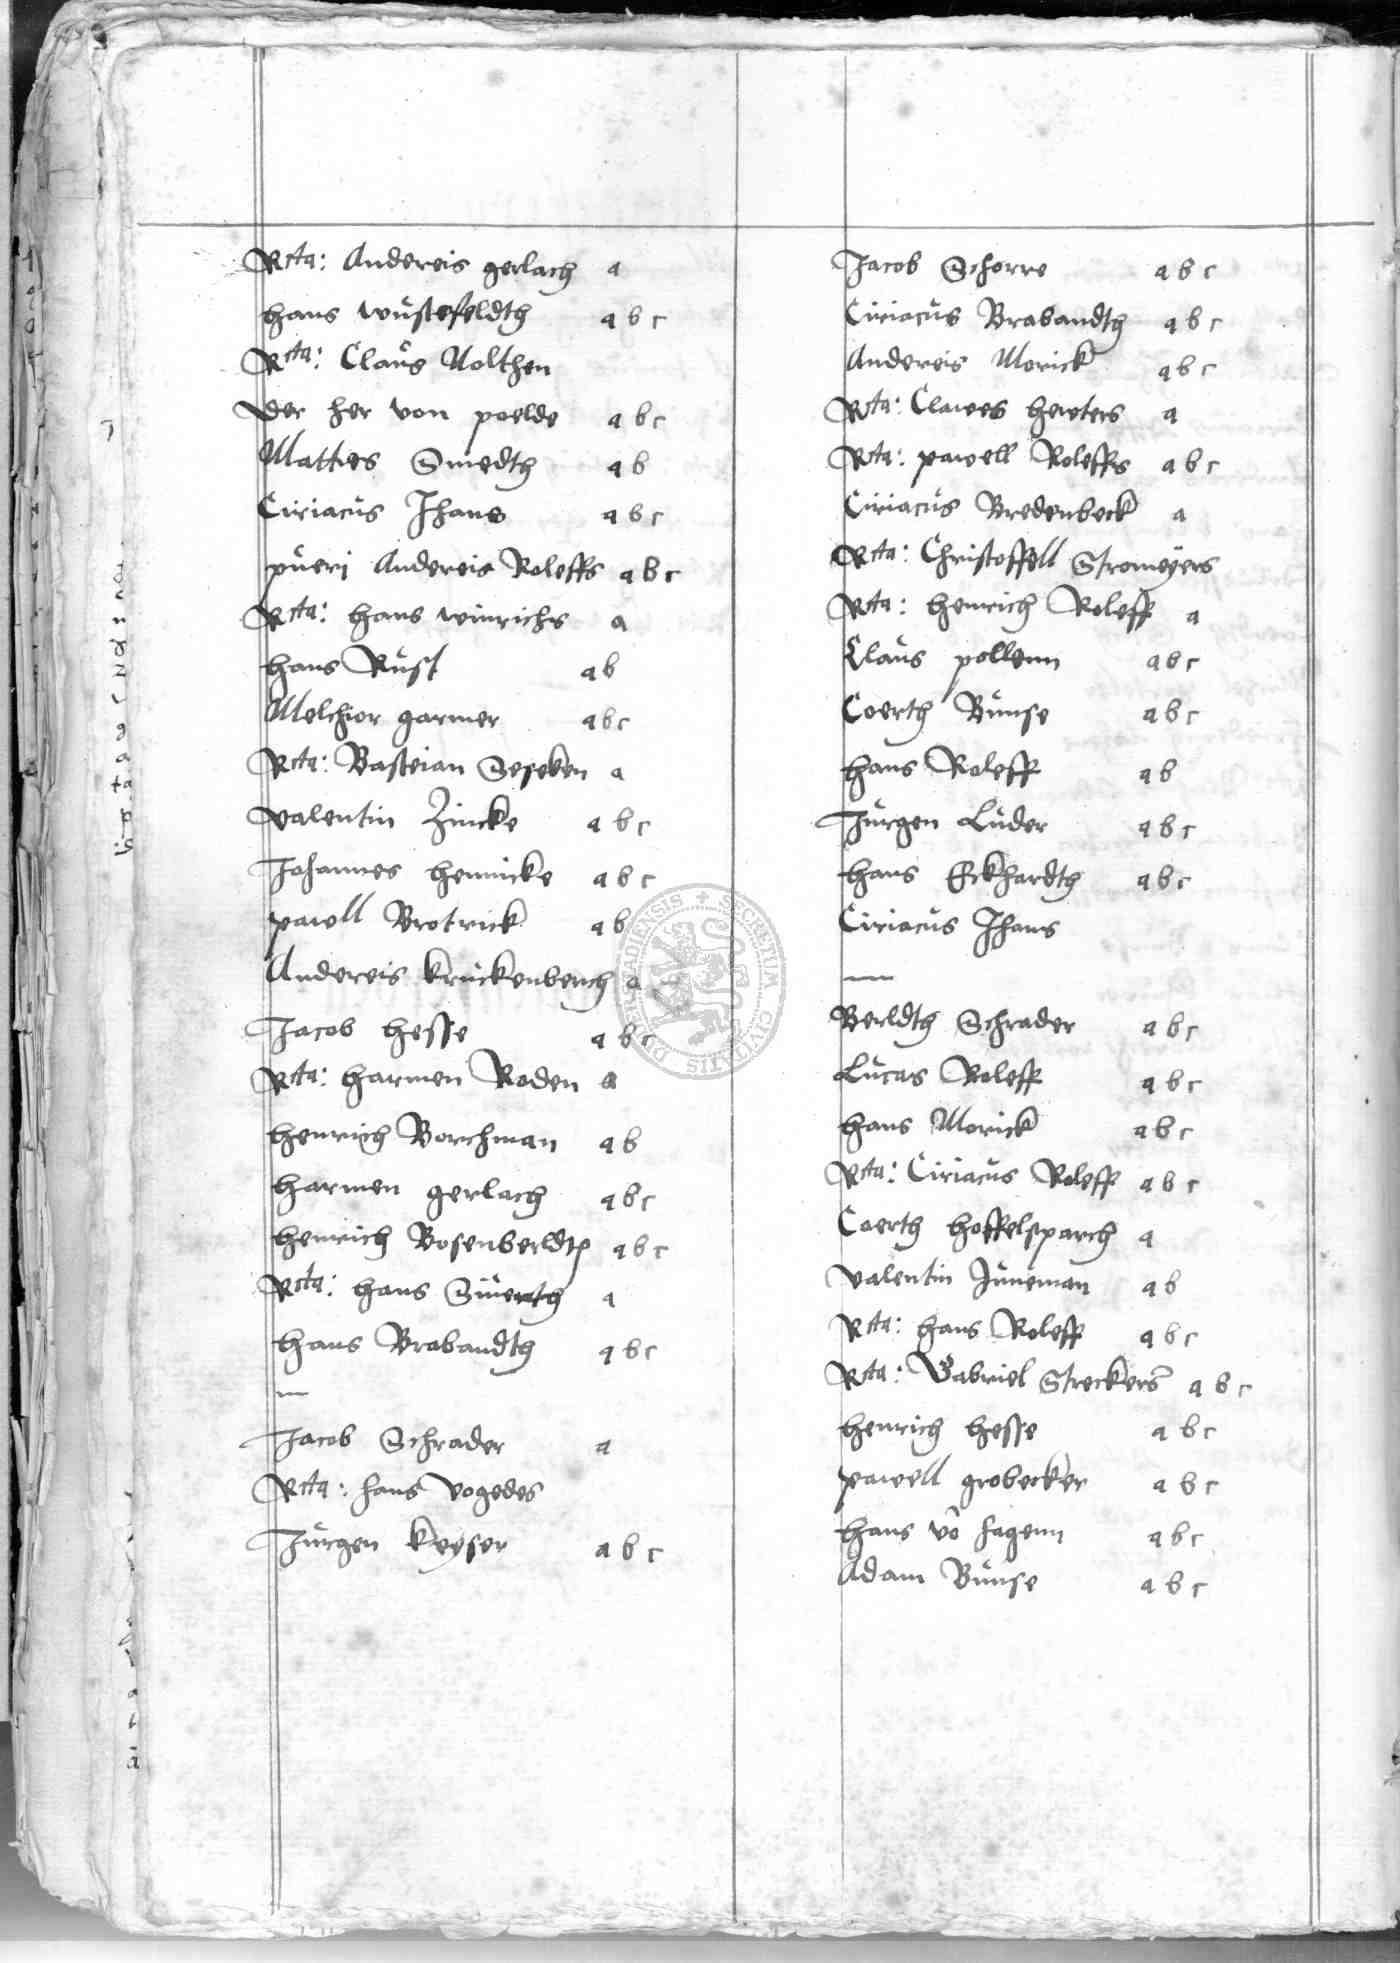 Rcta: Andereis gerlach a
hans wustefeldth a b c
Rcta: Claus Nolthen
der her von poelde a b c
Matties Smedth a b
Ciriacus Jhans a b c
pueri Andereis Roleffs a b c
Rcta: hans winrichs a
hans Rust a b
Melchior garmer a b c
Rcta: Basteian Seseken a
valentin Zincke a b c
Johannes hennicke a b c
pawell Brotrick a b
Andereis kruckenberch a
Jacob hesse a b c
Rcta: harmen Roden a
henrich Borchman a b
harmen gerlach a b c
henrich Bosenberldth a b c
Rcta: hans Siuerth a
hans Brabandth a b c
Jacob Schrader a
Rcta: hans vogedes
Jurgen keyser a b c
Jacob Schorre a b c
Ciriacus Brabandth a b c
Andereis Morick a b c
Rcta: Clawes hewters a
Rcta: pawell Roleffs a b c
Ciriacus Bredenbeck a
Rcta: Christoffell Stromeÿers
Rcta: henrich Roleff a
Claus pollenn a b c
Coerth Bunse a b c
hans Roleff a b
Jurgen Luder a b c
hans Eckhardth a b c
Ciriacus Jhans
Berldth Schrader a b c
Lucas Roleff a b c
hans Morick a b c
Rcta: Ciriacus Roleff a b c
Coerth hoffelsparch a
valentin Juneman a b
Rcta: hans Roleff a b c
Rcta: Gabriel Streckers a b c
henrich hesse a b c
pawell grobecker a b c
hans vō hagenn a b c
Adam Bunse a b c
SECRETUM CIVITATIS DUDERSTADIENSIS